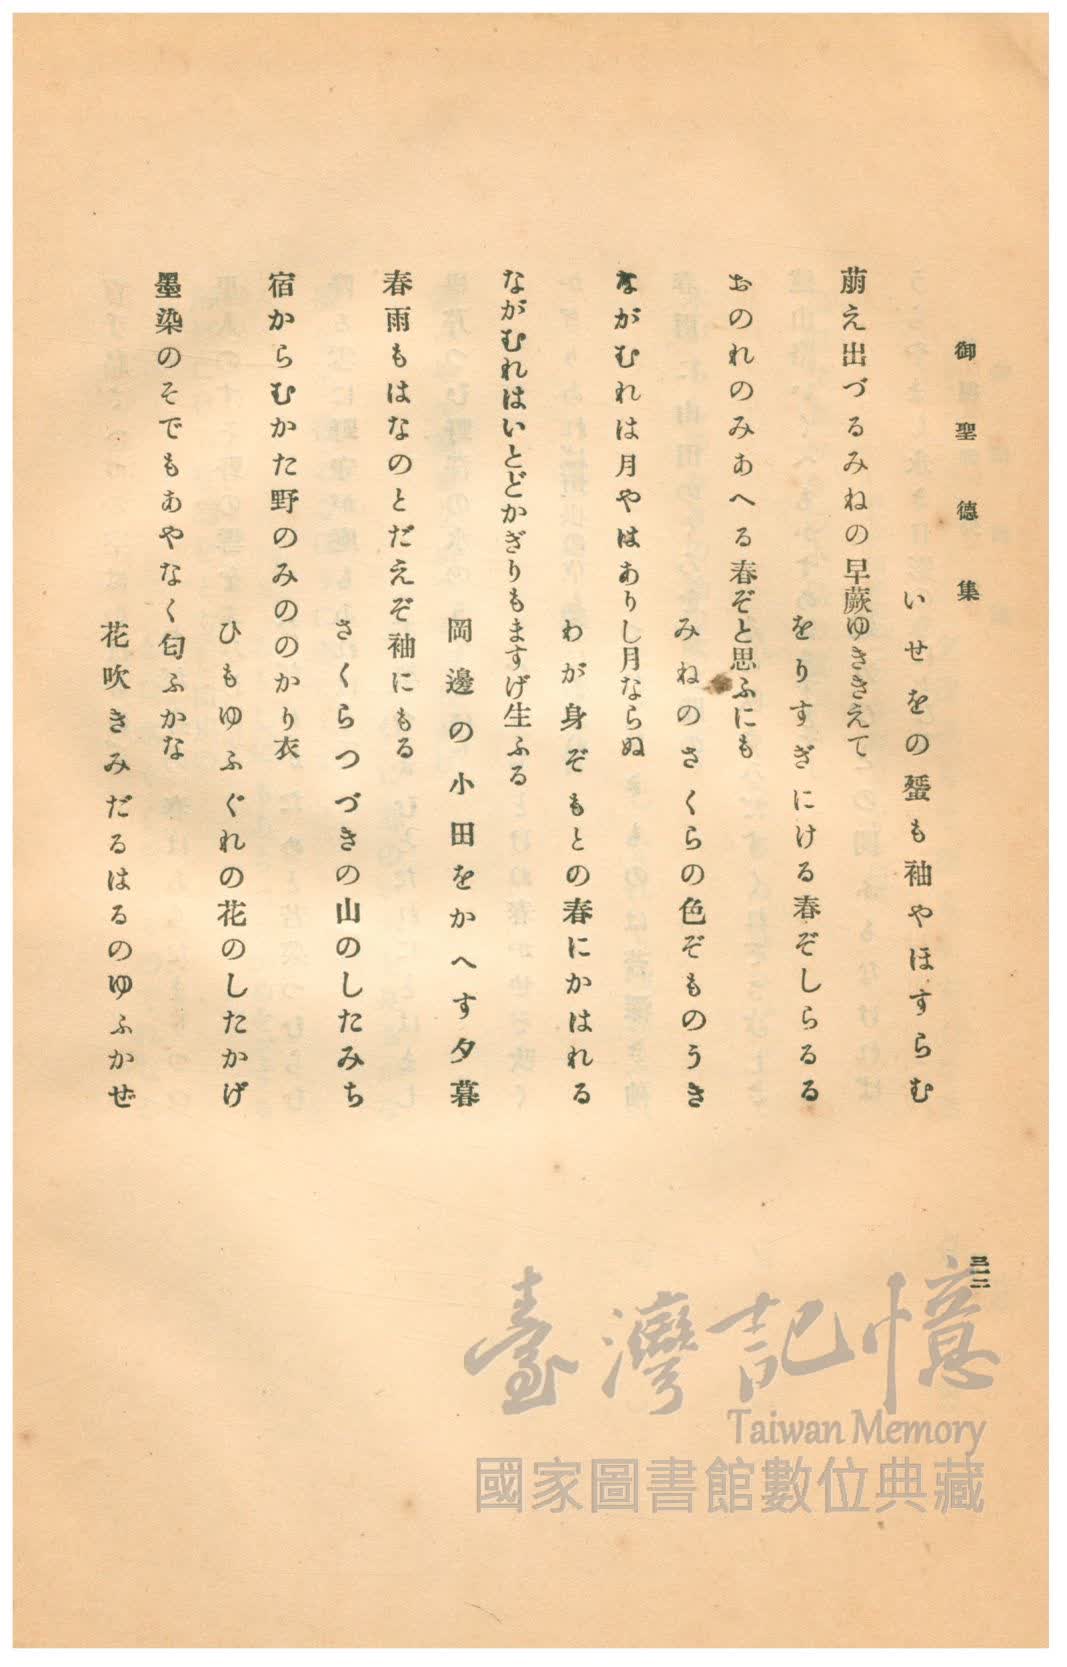 御聖德集
いせをの蜑も袖やほすらむ
萠え出づるみねの早蕨ゆききえて
をりすぎにける春ぞしらるる
おのれのみあへる春ぞと思ふにも
みねのさくらの色ぞものうき
ながむれは月やはありし月ならぬ
わが身ぞもとの春にかはれる
ながむれはいとどかぎりもますげ生ふる
岡邊の小田をかへす夕暮
春雨もはなのとだえぞ袖にもる
さくらつづきの山のしたみち
宿からむかた野のみののかり衣
ひもゆふぐれの花のしたかげ
墨染のそでもあやなく匂ふかな
花吹きみだるはるのゆふかぜ
臺灣記憶
Taiwan Memory
國家圖書館數位典藏